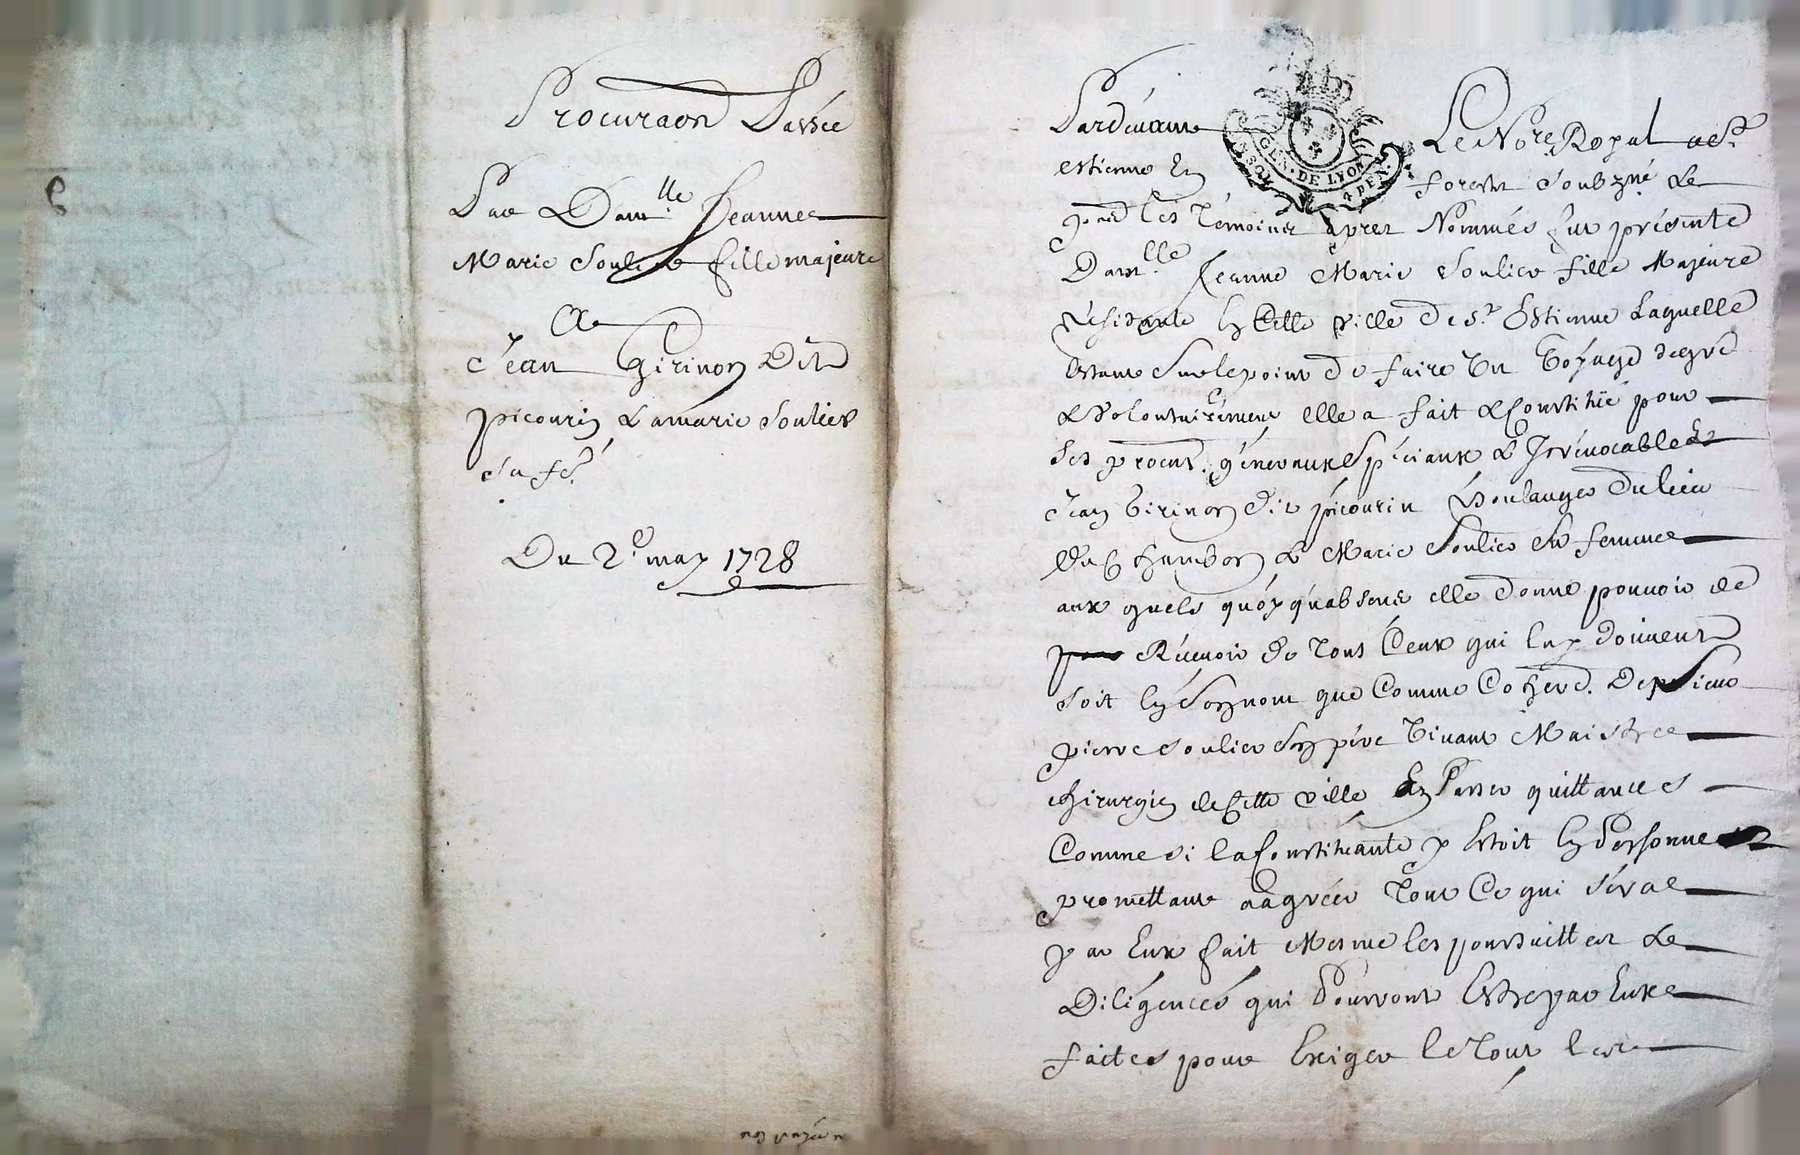 Procuraon Passée
Par Dam.lle Jeanne
Marie Soulier fille majeure
A
Jean Girinon Dit
picourin & a marie Soulier
Sa fe.
Du 2e. may 1728
Pardevant Le No.re Royal a St.
estienne En forest Soubzné &
present les Témoins apres Nommés fut présente
Dam.lle Jeanne Marie Soulier fille Majeure
Résidante En Cette ville de St. Estienne Laquelle
Estant Sur le point de faire un voyage de gré
& volontairement elle a fait & constitüé pour
Ses procur. géneraux Spéciaux & Irrévocables
Jean Girinon dit picourin Boulanger du lieu
du Chambon & Marie Soulier Sa femme
aux quels quoyqu'absens elle donne pouvoir de
Récevoir de Tous Ceux qui luy doivent
Soit En Son nom que Comme Coherd. De Sieur
pierre Soulier Son père vivant Maistre
chirurgien de Cette ville En Passer quittances
Comme Si la Constituante y Estoit En Personne
promettant aagréer Tout Ce qui Séra
par Eux fait Mesme les poursuittes &
Diligences qui Pourront Estre par Eux
faites pour Exiger le Tout
GEN. DE LYON